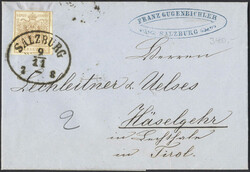 FRANZ GUGENBICHLER
SALZBURG
SALZBURG
9
11
Herren
Lechleitner & Uelses
2
Häselgehr
in Lechthale
in Tirol.